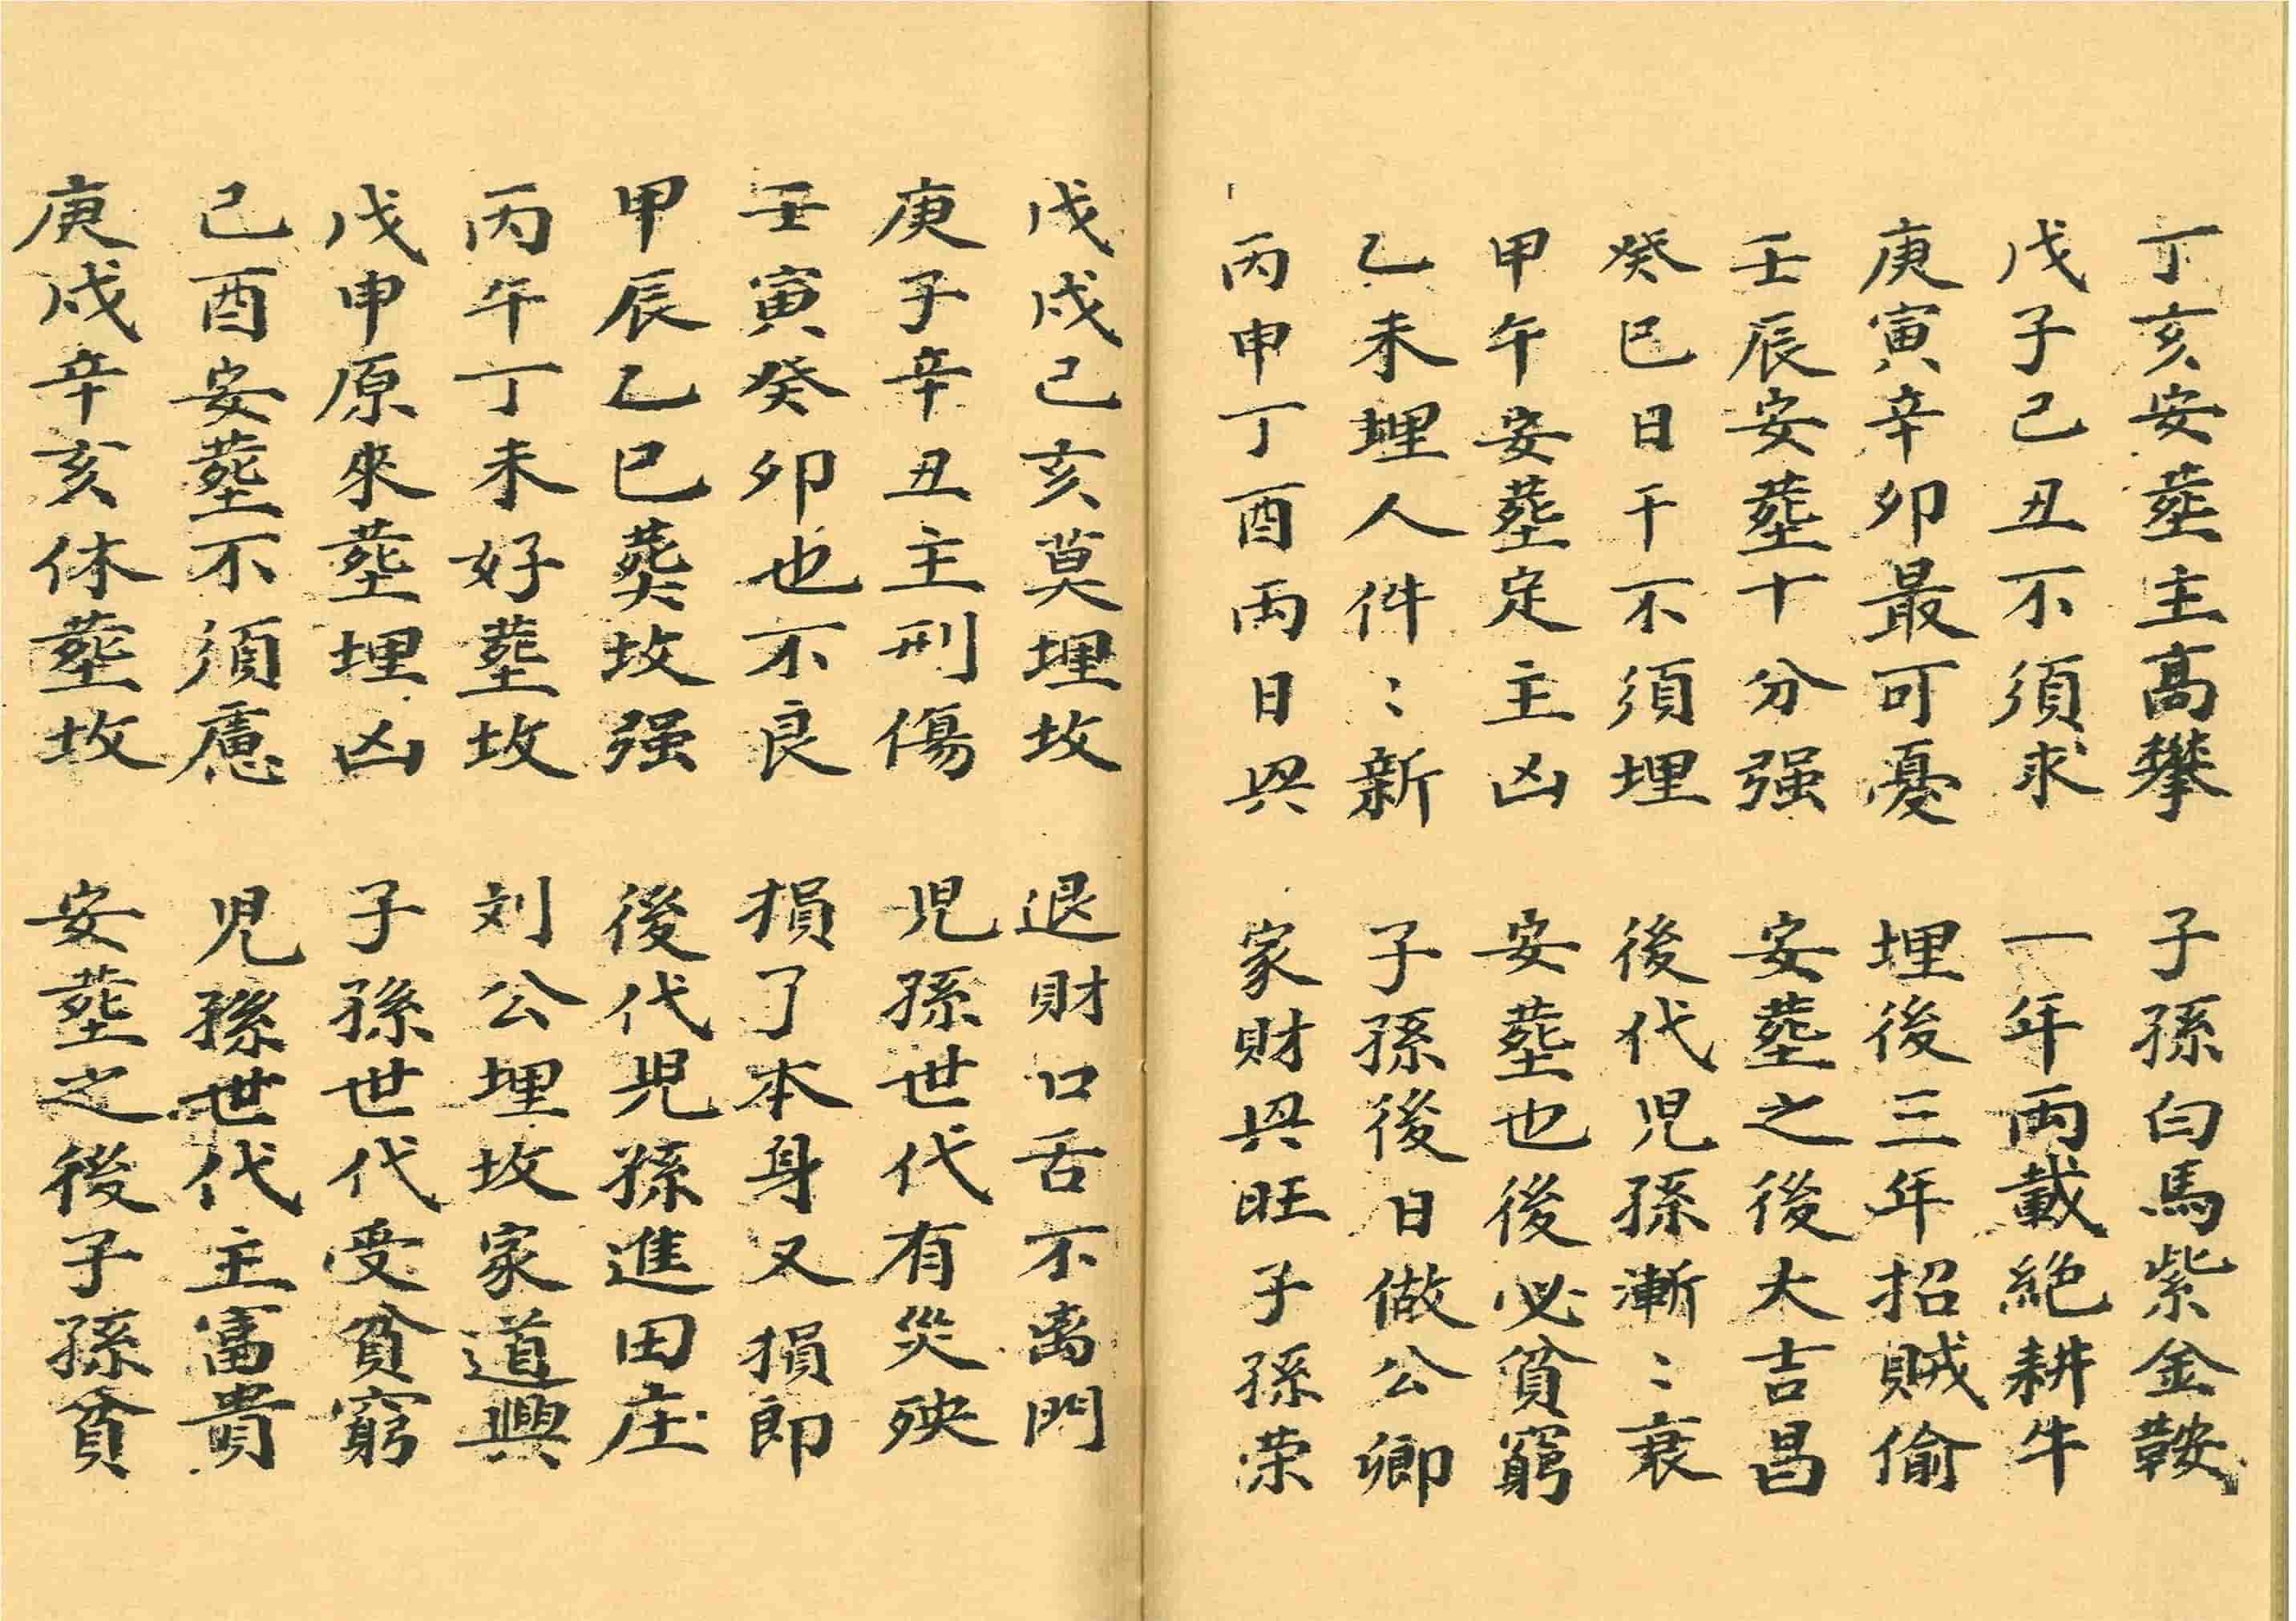 丁亥安塟主高攀　子孫白馬紫金鞍
戊子己丑不須求　一年両載絶耕牛
庚寅辛卯最可憂　埋後三年招賊偷
壬辰安塟十分强　安塟之後大吉昌
癸巳日干不須埋　後代児孫漸〻衰
甲午安塟定主凶　安塟也後必貧窮
乙未埋人件〻新　子孫後日做公卿
丙申丁酉両日㒷　家財㒷旺子孫荣
戊戌己亥莫埋坟　退財口舌不离門
庚子辛丑主刑傷　児孫世代有災殃
壬寅癸卯也不良　損了本身又損郎
甲辰乙巳葬坟强　後代児孫進田庄
丙午丁未好塟坟　刘公埋坟家道興
戊申原來塟埋凶　子孫世代受貧窮
己酉安塟不須慮　児孫世代主富貴
庚戌辛亥休塟坟　安塟之後子孫貧